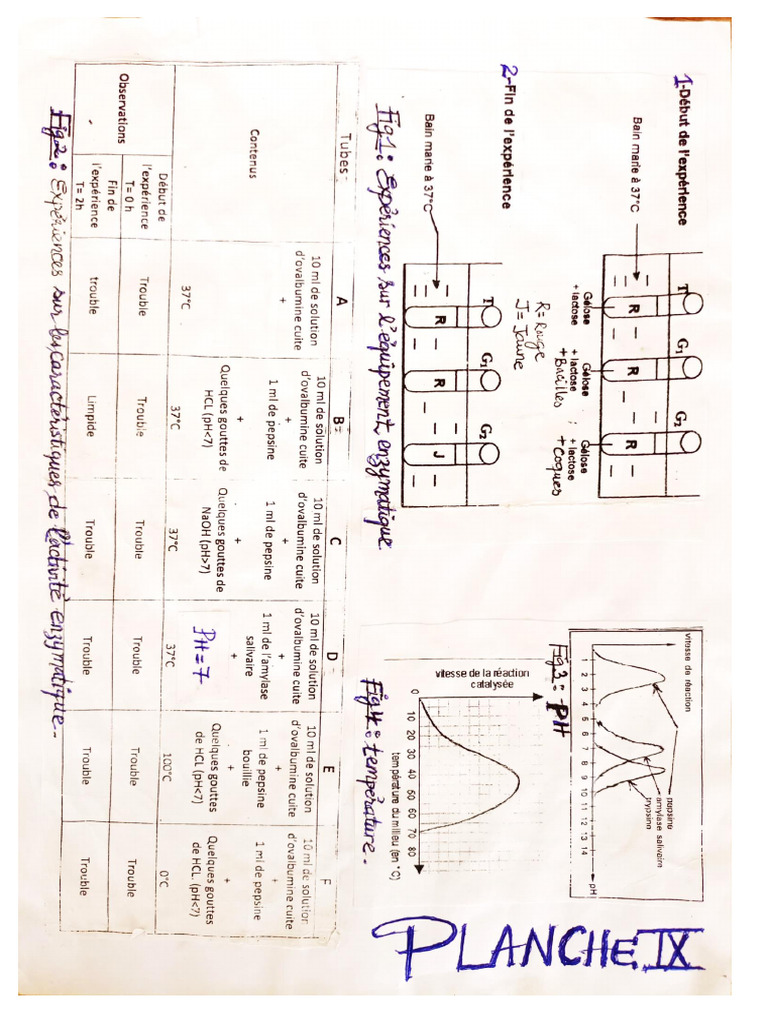 PLANCHE IX
1-Début de l'expérience
Bain marie à 37°C
T G₁ G₂
R R R
Gélose Gélose Gélose
+ lactose + lactose + lactose
+ Bacilles ; + Coques
R = Rouge
J = Jaune
2-Fin de l'expérience
Bain marie à 37°C
T G₁ G₂
R R J
Fig1: Expériences sur l'équipement enzymatique
vitesse de réaction
pepsine
amylase salivaire
trypsine
1 2 3 4 5 6 7 8 9 10 11 12 13 14
pH
Fig3: PH
vitesse de la réaction
catalysée
0 10 20 30 40 50 60 70 80
température du milieu (en °C)
Fig4: température.
Tubes A B= C D E F
Contenus
10 ml de solution
d'ovalbumine cuite
+
37°C
10 ml de solution
d'ovalbumine cuite
+
1 ml de pepsine
+
Quelques gouttes de
HCL (pH<7)
37°C
10 ml de solution
d'ovalbumine cuite
+
1 ml de pepsine
+
Quelques gouttes de
NaOH (pH>7)
37°C
10 ml de solution
d'ovalbumine cuite
+
1 ml de l'amylase
salivaire
+
PH = 7
37°C
10 ml de solution
d'ovalbumine cuite
+
1 ml de pepsine
bouillie
+
Quelques gouttes
de HCL (pH<7)
100°C
10 ml de solution
d'ovalbumine cuite
+
1 ml de pepsine
+
Quelques gouttes
de HCL (pH<7)
0°C
Observations
Début de
l'expérience
T= 0 h
Trouble Trouble Trouble Trouble Trouble Trouble
Fin de
l'expérience
T= 2h
trouble Limpide Trouble Trouble Trouble Trouble
Fig2: Expériences sur les caractéristiques de l'activité enzymatique.